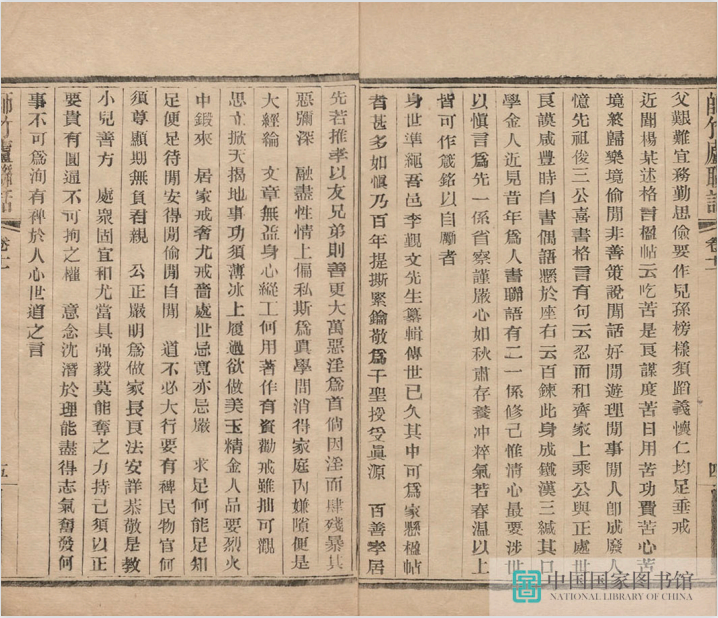 師竹廬聯話 卷十二 四
父艱難宜務勤思儉要作兒孫榜樣須蹈義懷仁均足垂戒
近閱楊某述格言楹帖云吃苦是良謀度苦日用苦功費苦心苦
境終歸樂境偷閒非善策說閒話好閒遊理閒事閒人卽成廢人
憶先祖俊三公喜書格言有句云忍而和齊家上乘公與正處世
良謨咸豐時自書偶語懸於座右云百鍊此身成鐵漢三緘其口
學金人近見昔年爲人書聯語有二一係修己惟清心最要涉世
以愼言爲先一係省察謹嚴心如秋肅存養冲粹氣若春温以上
皆可作箴銘以自勵者
身世準繩吾邑李觀文先生纂輯傳世已久其中可爲家懸楹帖
者甚多如愼乃百年提撕緊鑰敬爲千聖授受眞源 百善孝居
先若推孝以友兄弟則善更大萬惡淫爲首倘因淫而肆殘暴其
惡彌深 融盡性情上偏私斯爲眞學問消得家庭內嫌隙便是
大經綸 文章無益身心縱工何用著作有資勸戒雖拙可觀
思立掀天揭地事功須薄冰上履過欲做美玉精金人品要烈火
中鍛來 居家戒奢尤戒嗇處世忌寬亦忌嚴 求足何能足知
足便足待閒安得閒偷閒自閒 道不必大行要有裨民物官何
須尊顯期無負君親 公正嚴明爲做家長良法安詳恭敬是教
小兒善方 處衆固宜和尤當具強毅莫能奪之力持己須以正
要貴有圓通不可拘之權 意念沈潛於理能盡得志氣奮發何
事不可爲洵有裨於人心世道之言
師竹廬聯話 卷十二 五
中国国家图书馆
NATIONAL LIBRARY OF CHINA